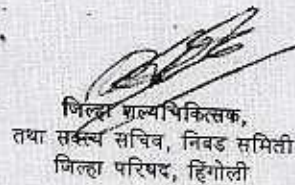 जिल्हा शल्यचिकित्सक,
तथा सदस्य सचिव, निवड समिती
जिल्हा परिषद, हिंगोली